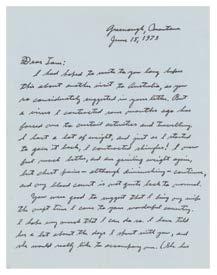 Greenough, Montana
June 18, 1973
Dear Ian:
I had hoped to write to you long before
this about another visit to Australia, as you
so considerately suggested in your letter. But
a virus I contracted some months ago has
forced me to curtail activities and travelling.
I lost a lot of weight, and just as I started
to gain it back, I contracted shingles! I now
feel much better, and am gaining weight again,
but chest pains – although diminishing – continue,
and my blood count is not quite back to normal.
You were good to suggest that I bring my wife
the next time I come to your wonderful country.
I hope very much that I can do so. I have told
her a lot about the days I spent with you, and
she would really like to accompany me. (She has